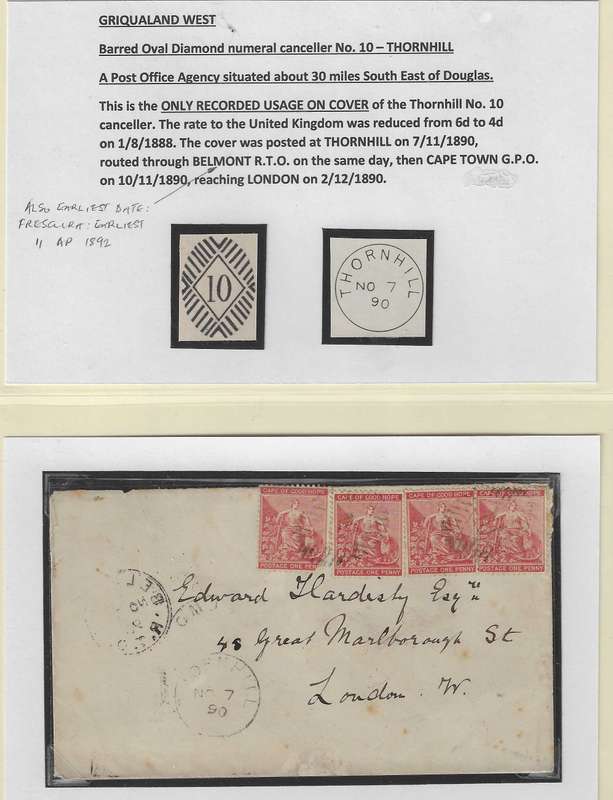 GRIQUALAND WEST
Barred Oval Diamond numeral canceller No. 10 – THORNHILL
A Post Office Agency situated about 30 miles South East of Douglas.
This is the ONLY RECORDED USAGE ON COVER of the Thornhill No. 10
canceller. The rate to the United Kingdom was reduced from 6d to 4d
on 1/8/1888. The cover was posted at THORNHILL on 7/11/1890,
routed through BELMONT R.T.O. on the same day, then CAPE TOWN G.P.O.
on 10/11/1890, reaching LONDON on 2/12/1890.
ALSO EARLIEST DATE:
FRESCURA: EARLIEST
" AP 1892
10
THORNHILL
NO 7
90
CAPE OF GOOD HOPE
POSTAGE ONE PENNY
CAPE OF GOOD HOPE
POSTAGE ONE PENNY
CAPE OF GOOD HOPE
POSTAGE ONE PENNY
CAPE OF GOOD HOPE
POSTAGE ONE PENNY
Edward Esqre
48 Great Marlborough St
London. W.
BEL
NO
ORNHILL
NO 7
90